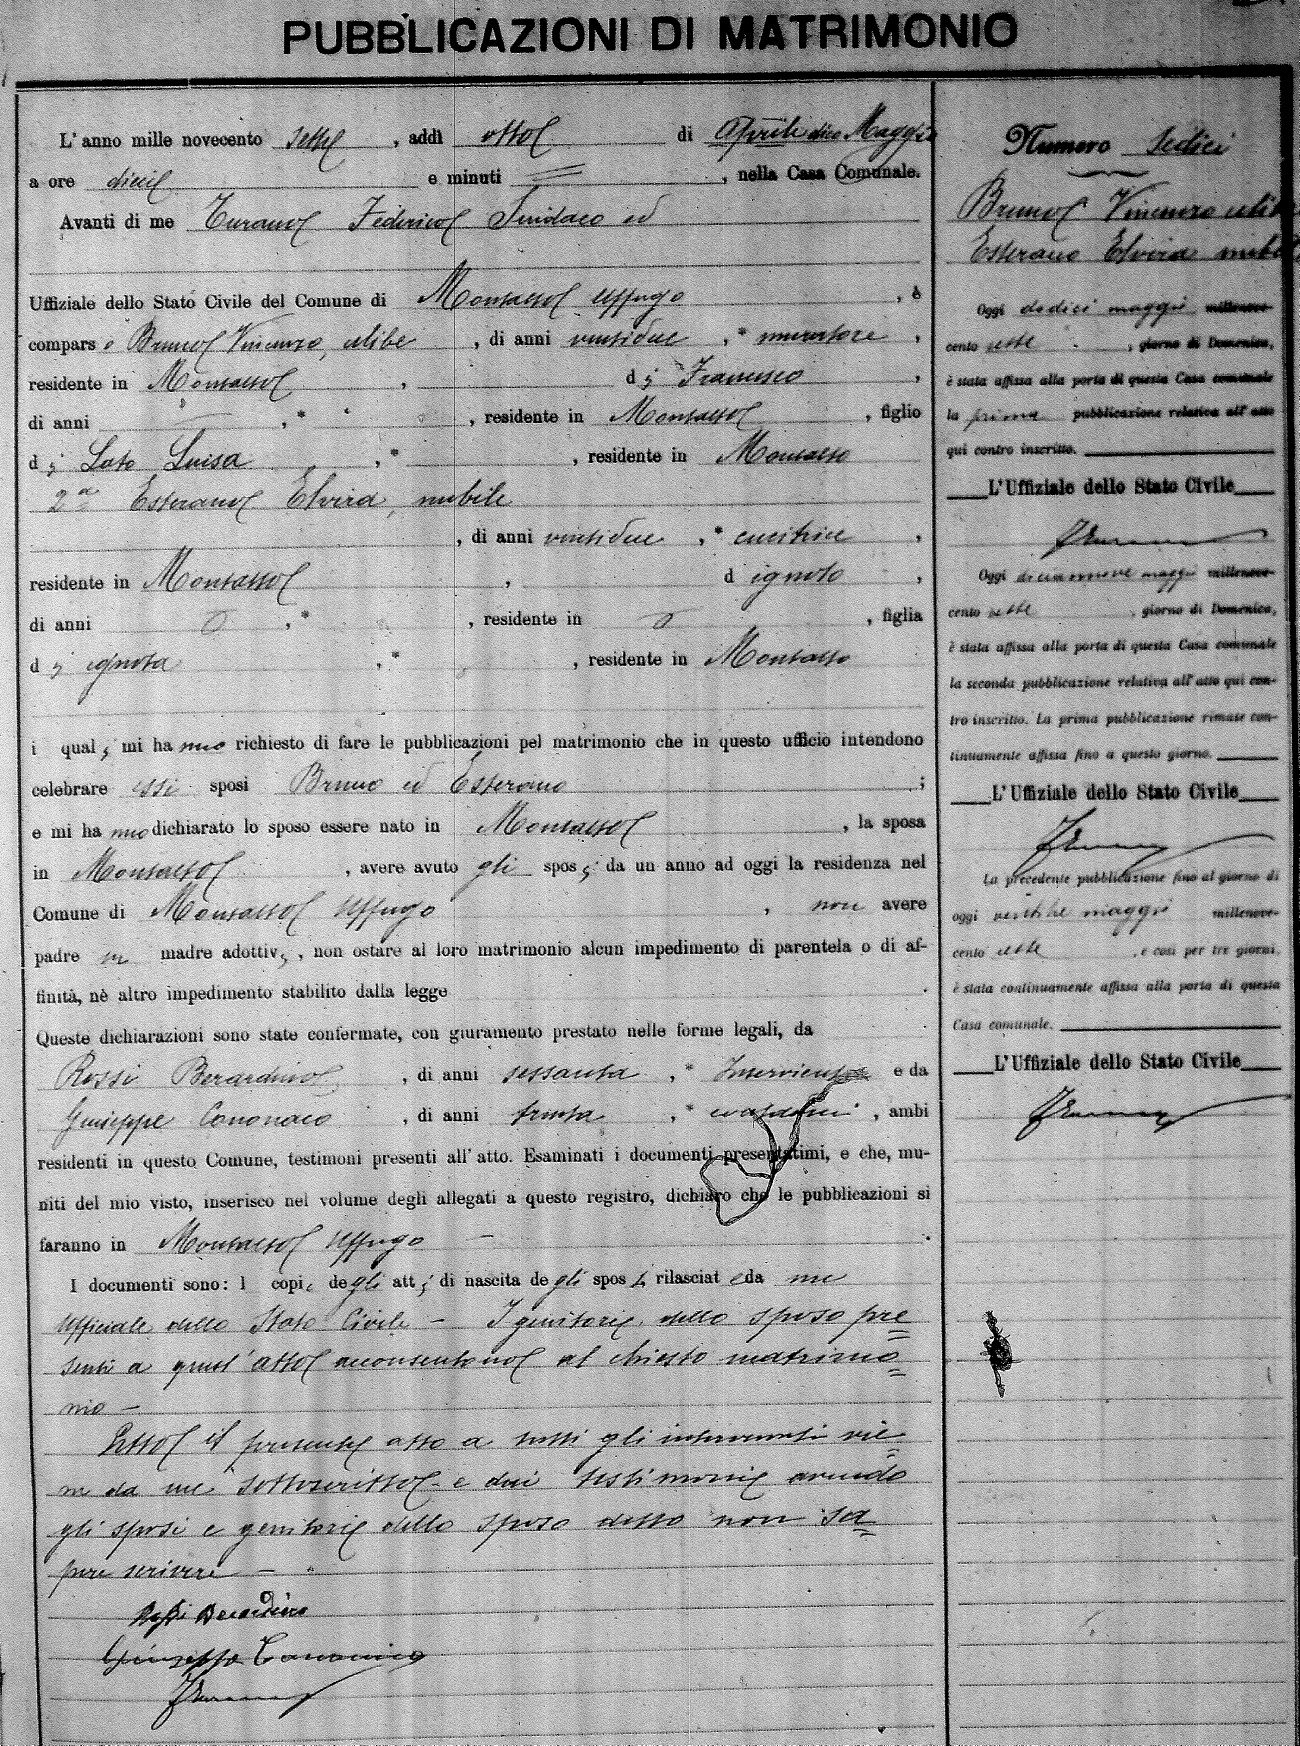 PUBBLICAZIONI DI MATRIMONIO
L'anno mille novecento sette , addì otto di Aprile dico Maggio
a ore dieci e minuti = , nella Casa Comunale.
Avanti di me Turano Federico Sindaco ed
Uffiziale dello Stato Civile del Comune di Montalto Uffugo , è
compars o Bruno Vincenzo, celibe , di anni ventidue , * muratore ,
residente in Montalto , di Francesco ,
di anni , * , residente in Montalto , figlio
di Lato Luisa , * , residente in Montalto
2ª Esterano Elvira, nubile
, di anni ventidue , * cucitrice ,
residente in Montalto , d ignoto ,
di anni , * , residente in , figlia
di ignota , * , residente in Montalto
i quali mi hanno richiesto di fare le pubblicazioni pel matrimonio che in questo ufficio intendono
celebrare essi sposi Bruno ed Esterano ;
e mi hanno dichiarato lo sposo essere nato in Montalto , la sposa
in Montalto , avere avuto gli sposi da un anno ad oggi la residenza nel
Comune di Montalto Uffugo , non avere
padre madre adottivi, non ostare al loro matrimonio alcun impedimento di parentela o di af-
finità, nè altro impedimento stabilito dalla legge .
Queste dichiarazioni sono state confermate, con giuramento prestato nelle forme legali, da
Rossi Berardino , di anni sessanta , * Inserviente e da
Giuseppe Canonaco , di anni trenta , * , ambi
residenti in questo Comune, testimoni presenti all'atto. Esaminati i documenti presentatimi, e che, mu-
niti del mio visto, inserisco nel volume degli allegati a questo registro, dichiaro che le pubblicazioni si
faranno in Montalto Uffugo .
I documenti sono: l copie degli atti di nascita degli sposi rilasciate da me
Ufficiale dello Stato Civile - I genitori dello sposo pre=
senti a quest'atto acconsentono al chiesto matrimo=
nio -
Letto il presente atto a tutti gli intervenuti vie=
ne da me sottoscritto e dai testimoni avendo
gli sposi e genitori dello sposo detto non sa=
pere scrivere -
Rossi Berardino
Giuseppe Canonaco
Numero Sedici
Bruno Vincenzo celibe
Esterano Elvira nubile
Oggi dodici maggio millenove-
cento sette , giorno di Domenica,
è stata affissa alla porta di questa Casa comunale
la prima pubblicazione relativa all'atto
qui contro inscritto.
L'Uffiziale dello Stato Civile
Oggi diciannove maggio millenove-
cento sette , giorno di Domenica,
è stata affissa alla porta di questa Casa comunale
la seconda pubblicazione relativa all'atto qui con-
tro inscritto. La prima pubblicazione rimase con-
tinuamente affissa fino a questo giorno.
L'Uffiziale dello Stato Civile
La precedente pubblicazione fino al giorno di
oggi maggio millenove-
cento sette , e così per tre giorni,
è stata continuamente affissa alla porta di questa
Casa comunale.
L'Uffiziale dello Stato Civile